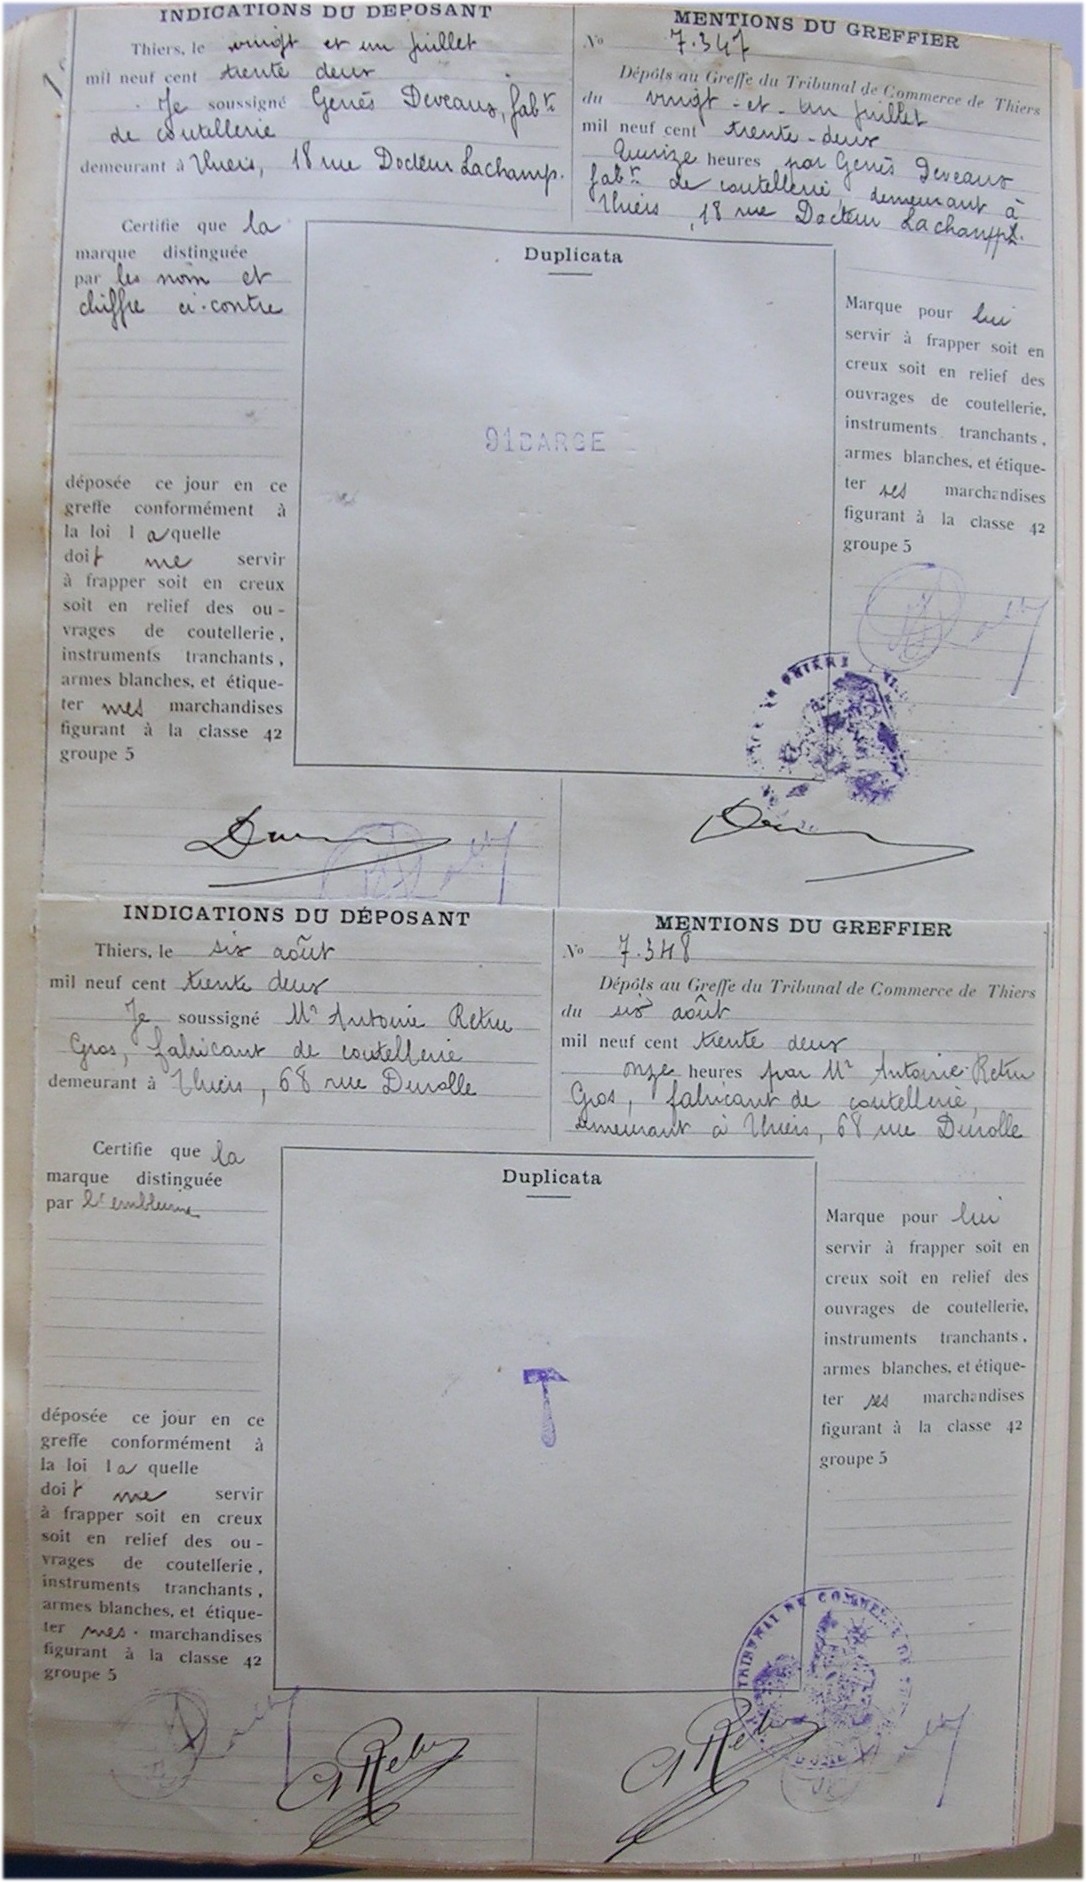 INDICATIONS DU DÉPOSANT
Thiers, le vingt et un juillet
mil neuf cent trente deux
Je soussigné Genès Deveaux, fabt
de coutellerie
demeurant à Thiers, 18 rue Docteur Lachamp.
MENTIONS DU GREFFIER
No 7.347
Dépôts au Greffe du Tribunal de Commerce de Thiers
du vingt-et-un juillet
mil neuf cent trente-deux
Quinze heures par Genès Deveaux
fabt de coutellerie, demeurant à
Thiers, 18 rue Docteur Lachampt.
Certifie que la
marque distinguée
par les nom et
chiffre ci-contre
déposée ce jour en ce
greffe conformément à
la loi laquelle
doit me servir
à frapper soit en creux
soit en relief des ou-
vrages de coutellerie,
instruments tranchants,
armes blanches, et étique-
ter mes marchandises
figurant à la classe 42
groupe 5
Duplicata
91 BARGE
Marque pour lui
servir à frapper soit en
creux soit en relief des
ouvrages de coutellerie,
instruments tranchants,
armes blanches, et étique-
ter ses marchandises
figurant à la classe 42
groupe 5
INDICATIONS DU DÉPOSANT
Thiers, le six août
mil neuf cent trente deux
Je soussigné Mr Antoine Retru
Gros, fabricant de coutellerie
demeurant à Thiers, 68 rue Durolle
MENTIONS DU GREFFIER
No 7.348
Dépôts au Greffe du Tribunal de Commerce de Thiers
du six août
mil neuf cent trente deux
onze heures par Mr Antoine Retru
Gros, fabricant de coutellerie,
demeurant à Thiers, 68 rue Durolle
Certifie que la
marque distinguée
par l'emblème
déposée ce jour en ce
greffe conformément à
la loi la quelle
doit me servir
à frapper soit en creux
soit en relief des ou-
vrages de coutellerie,
instruments tranchants,
armes blanches, et étique-
ter mes marchandises
figurant à la classe 42
groupe 5
Duplicata
Marque pour lui
servir à frapper soit en
creux soit en relief des
ouvrages de coutellerie,
instruments tranchants,
armes blanches, et étique-
ter ses marchandises
figurant à la classe 42
groupe 5
TRIBUNAL DE COMMERCE DE
A Retru
A Retru